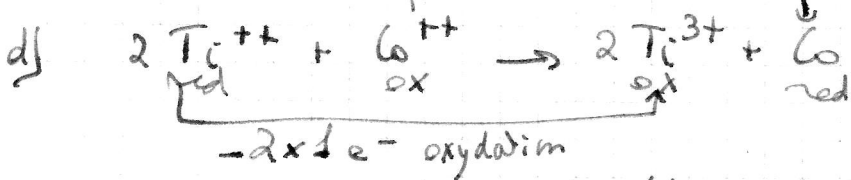 d) 2 Ti⁺⁺ + Co⁺⁺ → 2 Ti³⁺ + Co
red ox ox red
-2x1e⁻ oxydation